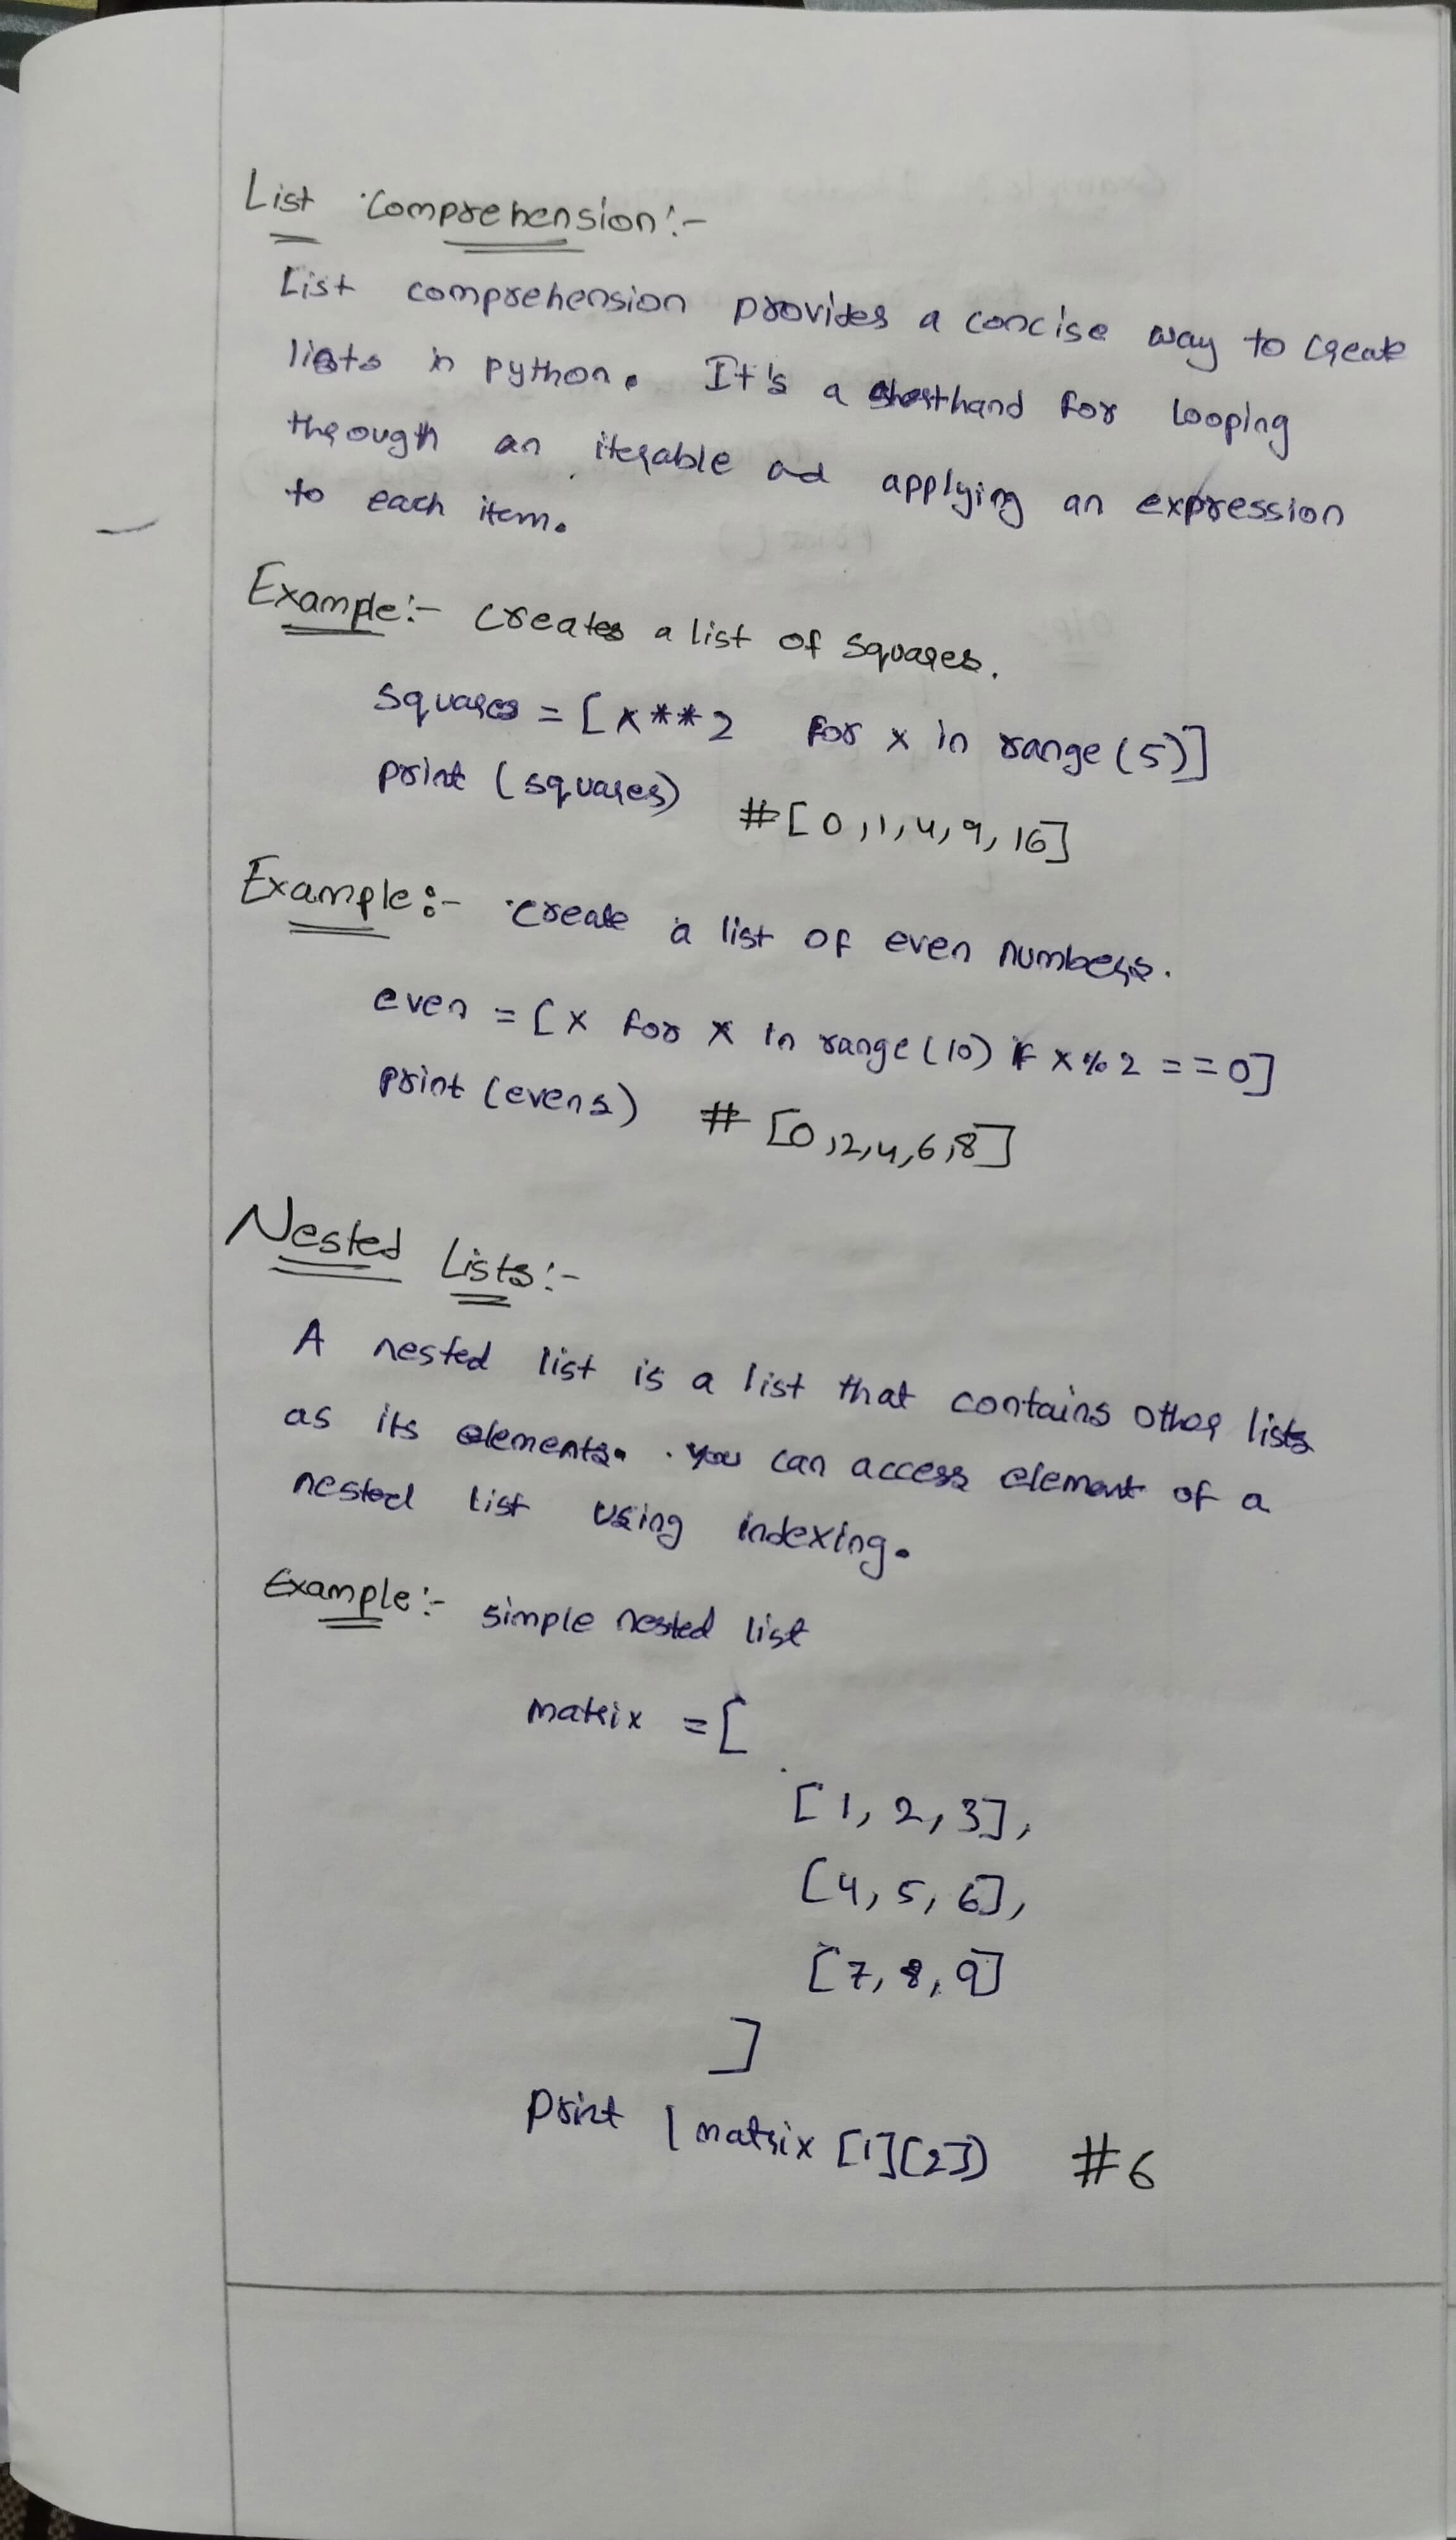 List Comprehension:-
List comprehension provides a concise way to create
lists in python. It's a shorthand for looping
through an iterable ad applying an expression
to each item.
Example:- creates a list of squares.
squares = [x**2 for x in range (5)]
print (squares) #[0,1,4,9,16]
Example:- create a list of even numbers.
even = [x for x in range (10) if x%2 ==0]
print (evens) # [0,2,4,6,8]
Nested Lists:-
A nested list is a list that contains other lists
as its elements. you can access element of a
nested list using indexing.
Example:- simple nested list
matrix = [
[1, 2, 3],
[4, 5, 6],
[7, 8, 9]
]
print (matrix [1][2]) #6